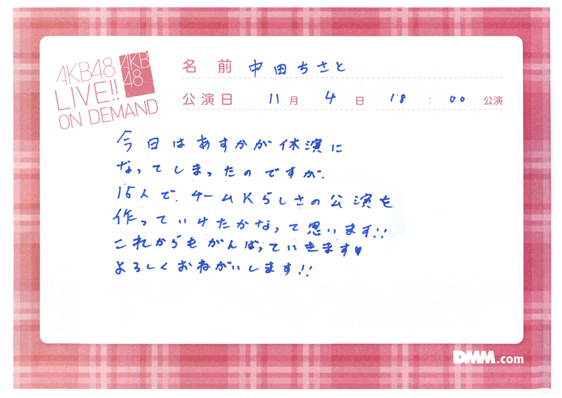 AKB48
LIVE!!
ON DEMAND
AKB
48
名前 中田ちさと
公演日 11月 4日 18:00公演
今日はあすかが休演に
なってしまったのですが、
15人で、チームKらしさの公演を
作っていけたかなって思います!!
これからもがんばっていきます♥
よろしくおねがいします!!
DMM.com